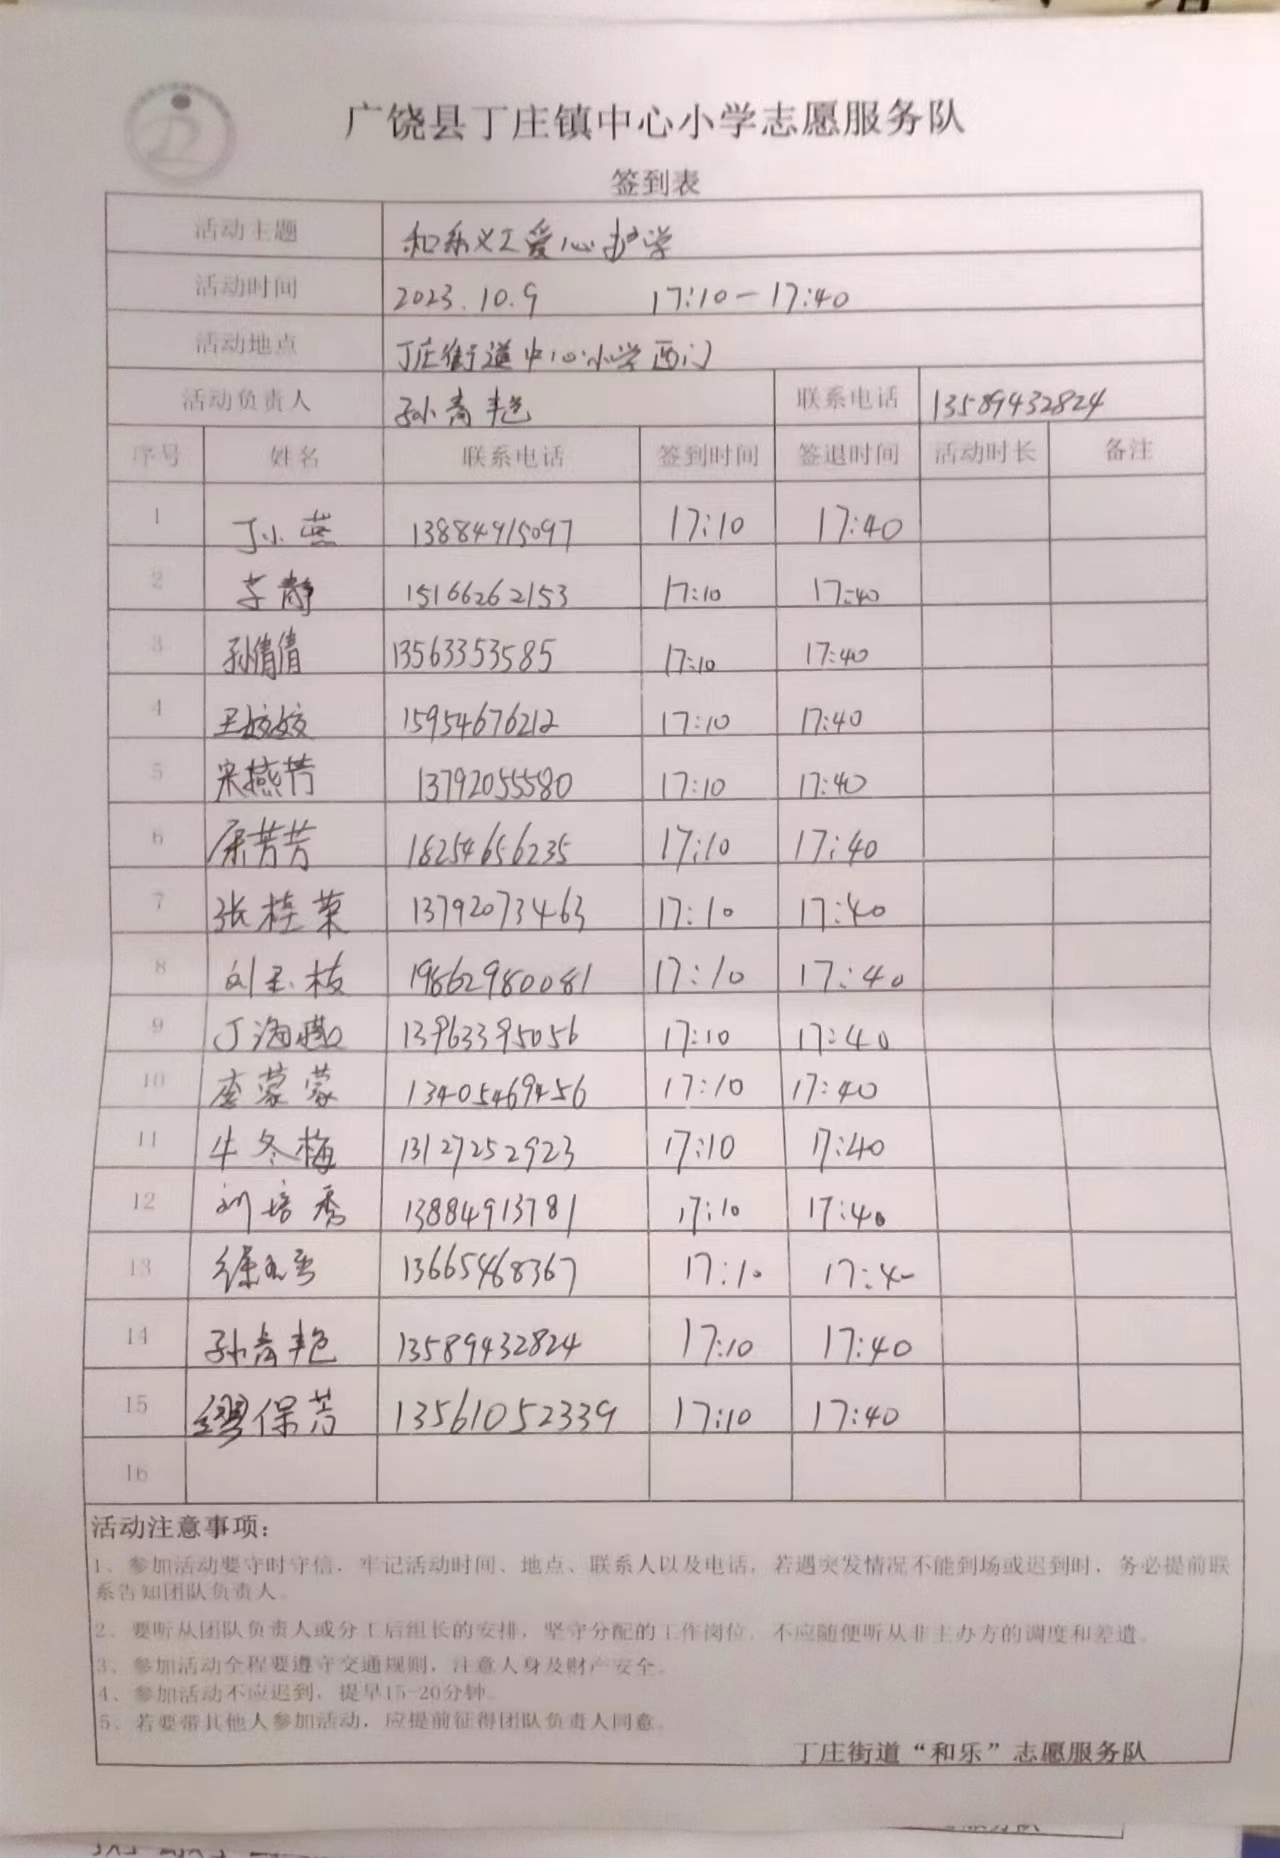 广饶县丁庄镇中心小学志愿服务队
签到表
活动主题 和乐义工爱心护学
活动时间 2023.10.9 17:10-17:40
活动地点 丁庄街道中心小学西门
活动负责人 孙青艳 联系电话 13589432824
序号 姓名 联系电话 签到时间 签退时间 活动时长 备注
1 丁小燕 13884915097 17:10 17:40
2 李静 15166262153 17:10 17:40
3 孙倩倩 13563353585 17:10 17:40
4 王姣姣 15954676212 17:10 17:40
5 宋燕芳 13792055580 17:10 17:40
6 芳芳 18254656235 17:10 17:40
7 张桂荣 13792073463 17:10 17:40
8 刘玉枝 19862980081 17:10 17:40
9 丁海燕 13963395056 17:10 17:40
10 李蒙蒙 13405469456 17:10 17:40
11 牛冬梅 13127252923 17:10 17:40
12 刘培秀 13884913781 17:10 17:40
13 徐 13665468367 17:10 17:40
14 孙青艳 13589432824 17:10 17:40
15 缪保芳 13561052339 17:10 17:40
16
活动注意事项：
1、参加活动要守时守信，牢记活动时间、地点、联系人以及电话，若遇突发情况不能到场或迟到时，务必提前联
系告知团队负责人。
2、要听从团队负责人或分工后组长的安排，坚守分配的工作岗位，不应随便听从非主办方的调度和差遣。
3、参加活动全程要遵守交通规则，注意人身及财产安全。
4、参加活动不应迟到，提早15-20分钟。
5、若要带其他人参加活动，应提前征得团队负责人同意。
丁庄街道“和乐”志愿服务队